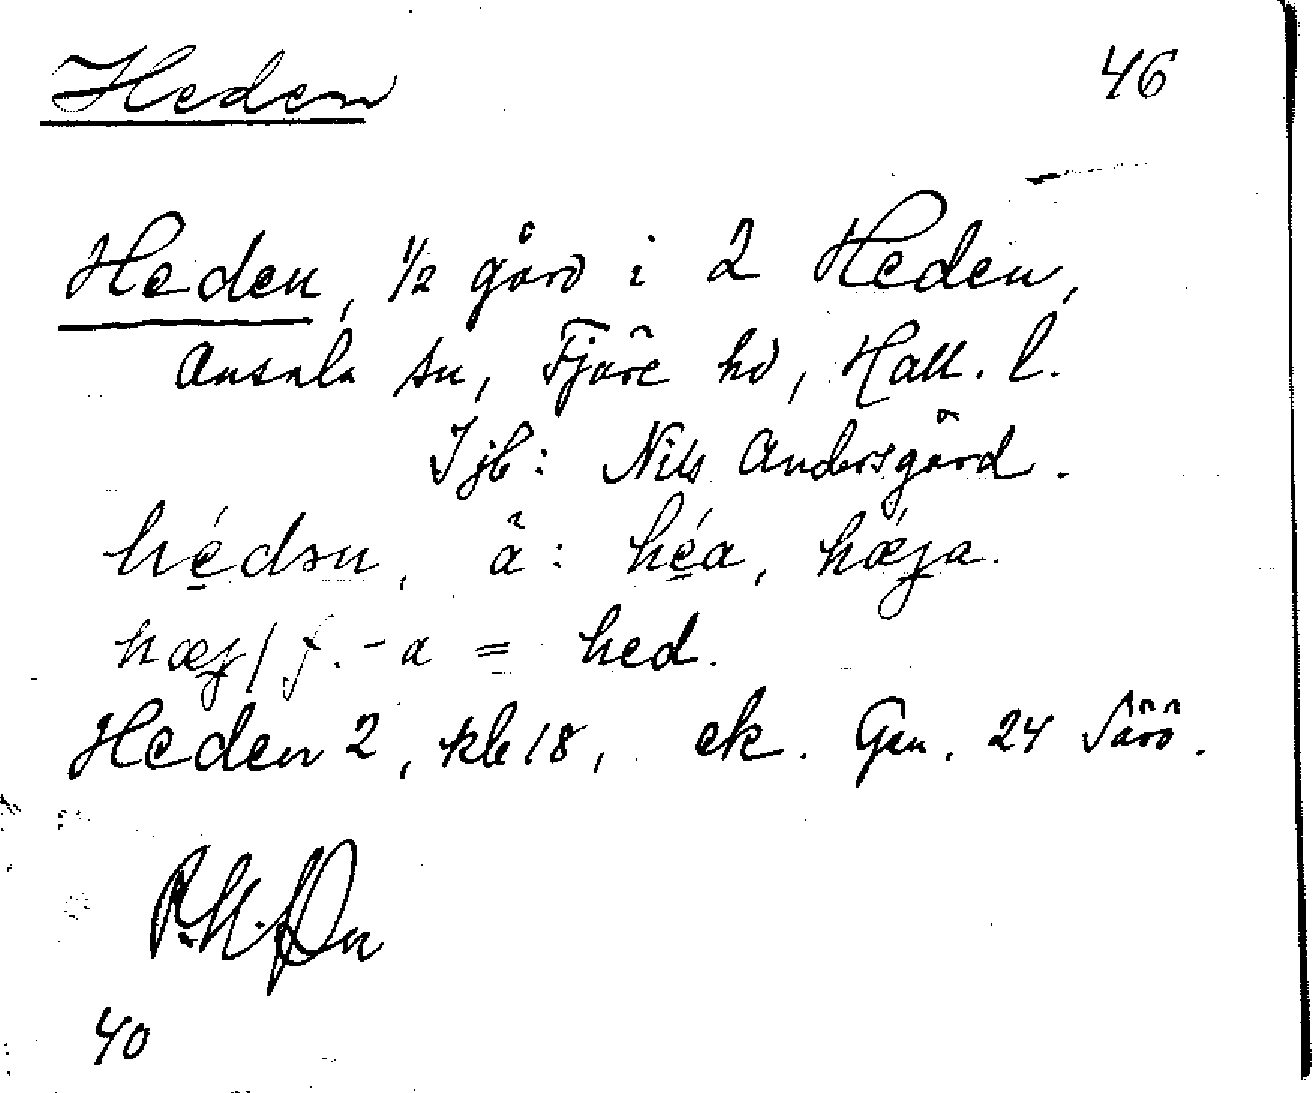 Heden 46
Heden, 1/2 gård i 2 Heden,
Onsala sn, Fjäre hd, Hall. l.
Jjb: Nils Andersgård.
hé̱dən, ä: hé̱a, hǽja.
hæj/ f. -a = hed.
Heden 2, kb 18, ek. Gen. 24 Särö.
40